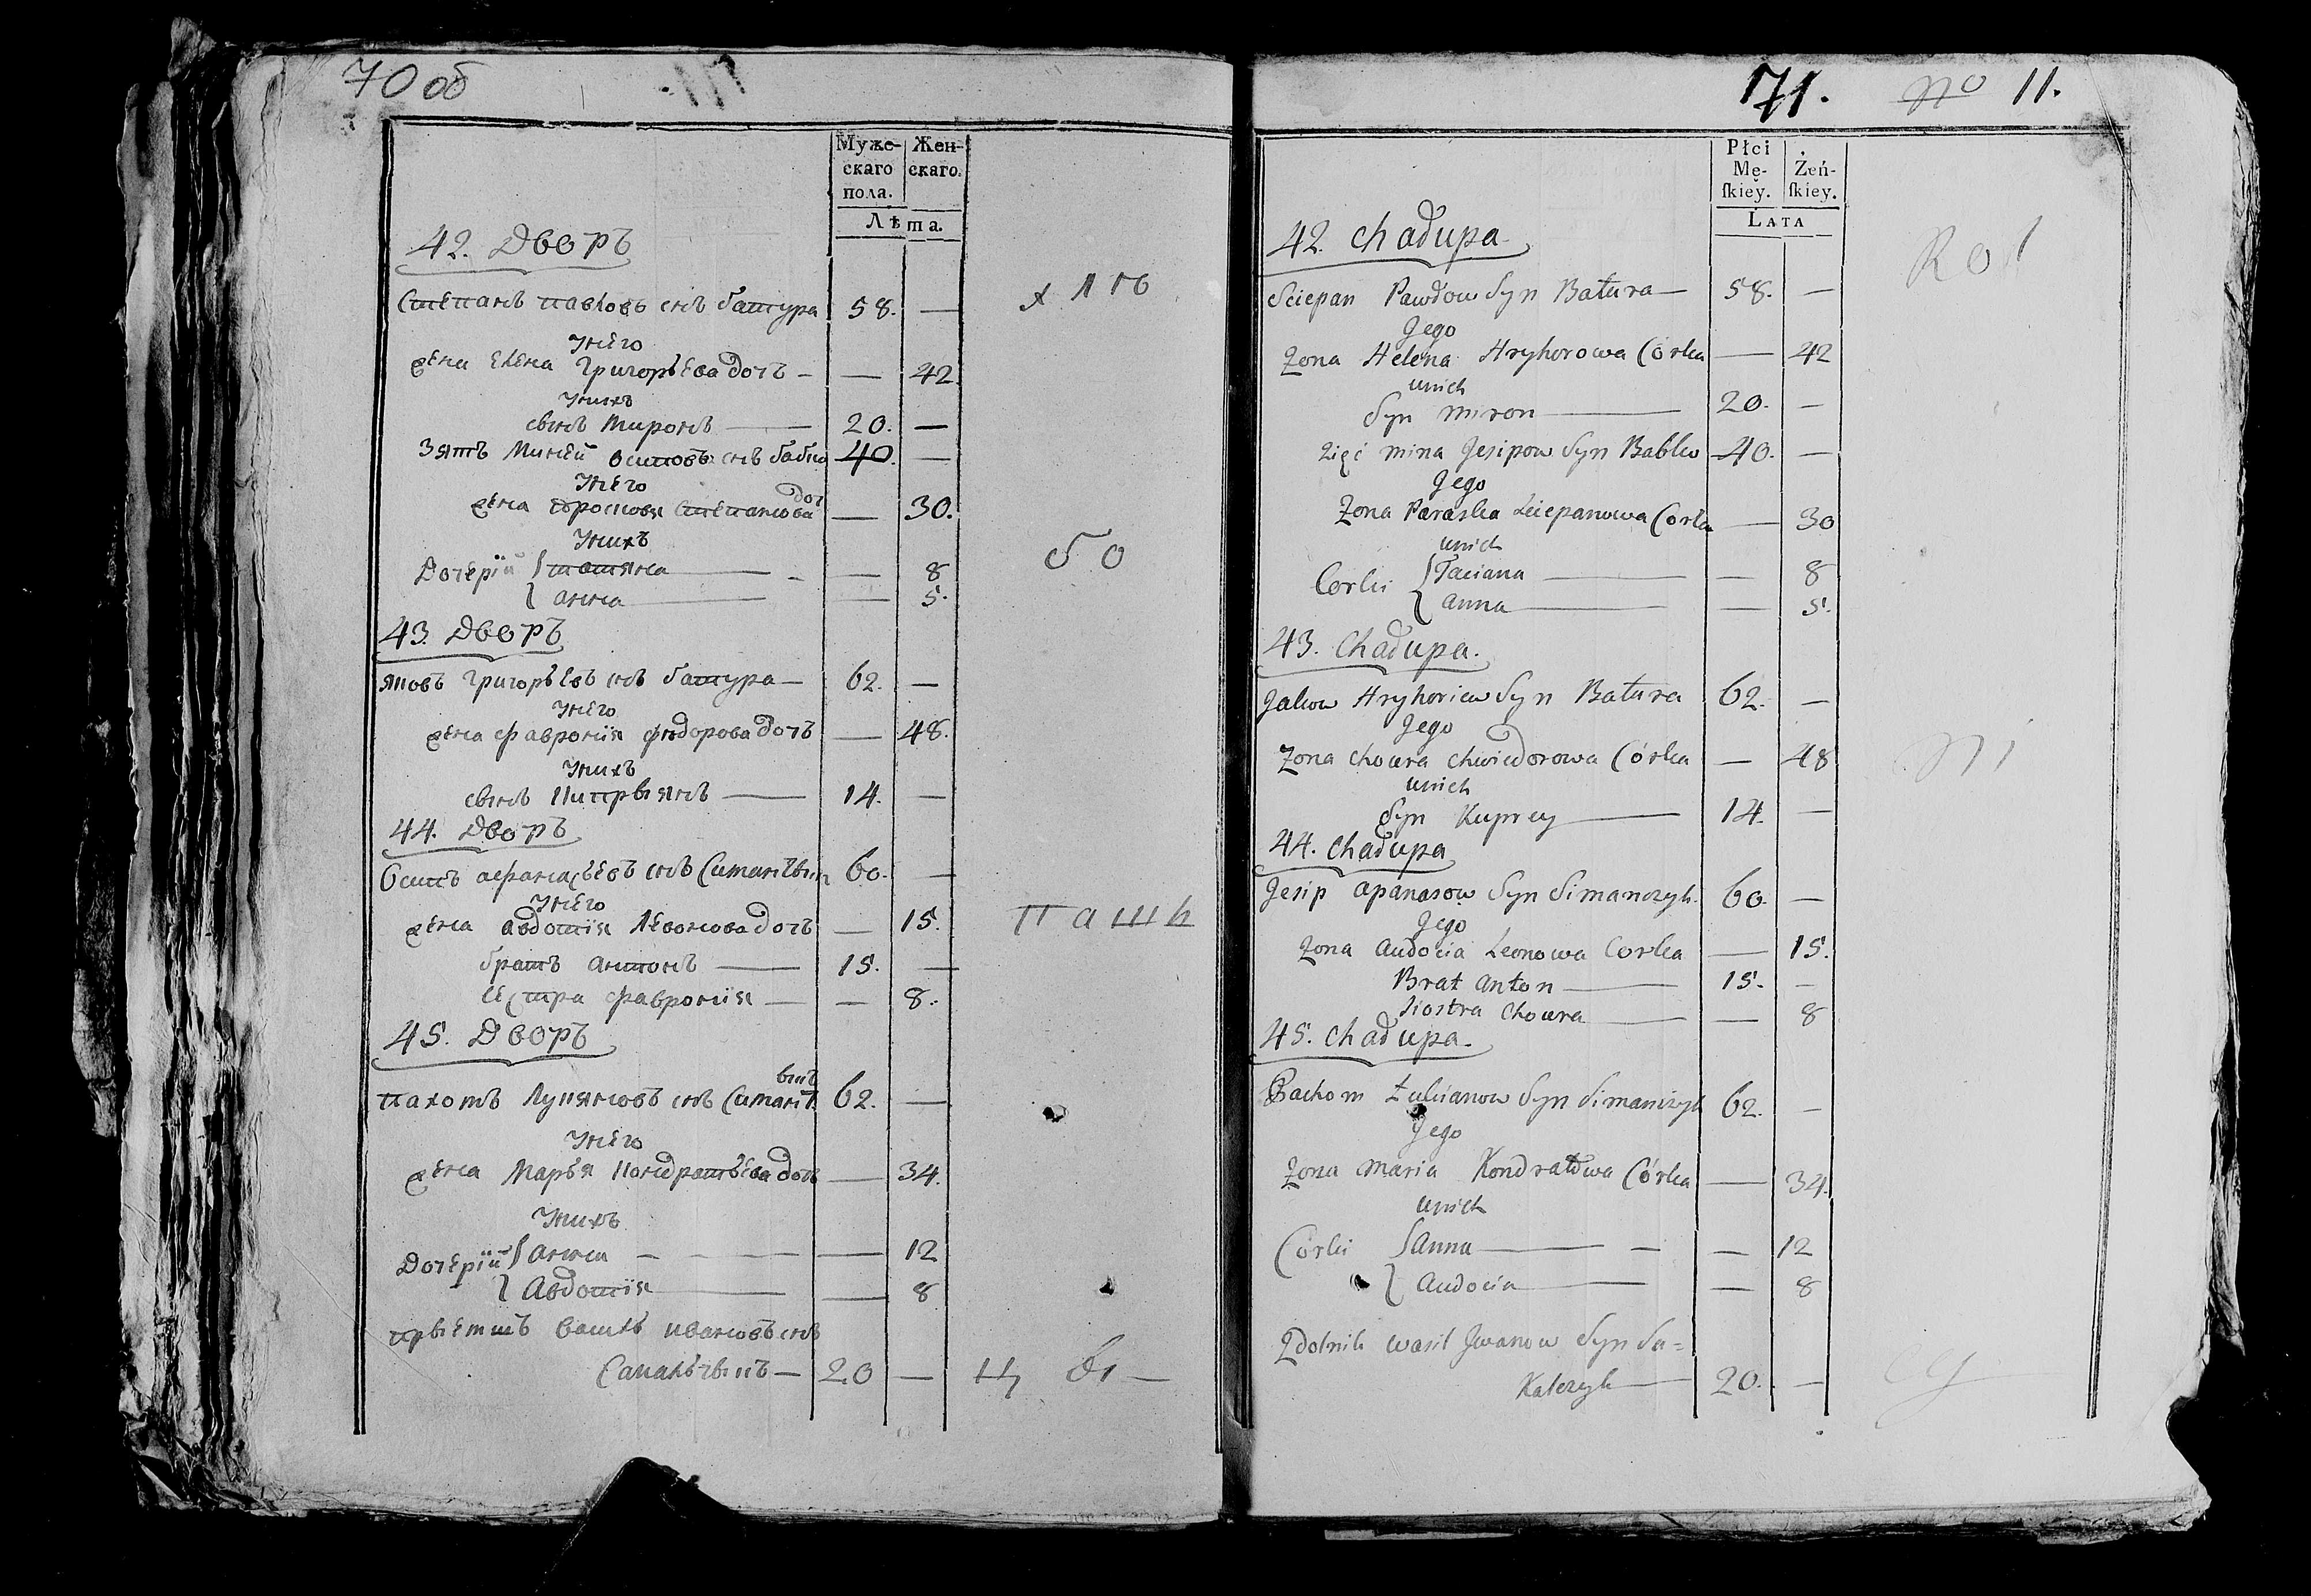 70 об
Муже-
скаго
пола.
Жен-
скаго.
Лѣта.
42. Дворъ
Степанъ павловъ снъ батура 58. —
Унего
жена елена Григорьева дочь — — 42
Унихъ
сынъ Миронъ — 20. —
Зять Миней осиповъ снъ бабко 40. —
Унего
жена просковя степанова доч — 30.
Унихъ
Дочерїи татьяна — — 8
анна — — 5.
43. Дворъ
яковъ григорьевъ снъ батура — 62. —
Унего
жена февронїя фюдорова дочь — 48.
Унихъ
сынъ Киприянъ — 14. —
44. Дворъ
Осипъ афанасьевъ снъ Симанчыкъ 60. —
Унего
жена авдотїя Левонова дочь — 15.
братъ антонъ — 15. —
сестра февронїя — — 8.
45. Дворъ
пахомъ Лукяновъ снъ Симанчыкъ 62. —
Унего
жена Марья Кондратьева дочь — 34.
Унихъ
Дочерїи анна — — 12
Авдотїя — — 8
прыемышъ василь ивановъ снъ
Сакальчыкъ — 20 —
бо
пашп
цы —
71. No 11.
Płci
Mę-
ſkiey.
Żeń-
ſkiey.
LATA
42. Chadupa
Sciepan Pawdow Syn Batura — 58. —
Jego
Zona Helena Hryhorowa Córka — 42
unich
Syn Miron — 20. —
Zięć Mina Jesipow Syn Babko 40. —
Jego
Zona Paraska Sciepanowa Corka — 30
unich
Corki Taciana — — 8
Anna — — 5.
43. Chadupa.
Jakow Hryhoriew Syn Batura 62. —
Jego
Zona Chowra Chwiedorowa Córka — 48
unich
Syn Kuprey — 14. —
44. Chadupa
Jesip Apanasow Syn Simanczyk 60. —
Jego
Zona Audocia Leonowa Corka — 15.
Brat Anton — 15. —
Siostra Chowra — — 8
45. Chadupa.
Pachom Łukianow Syn Simanczyk 62. —
Jego
Zona Maria Kondratowa Córka — 34.
unich
Córki Anna — — 12
Audocia — — 8
Zdolnik Wasil Jwanow Syn Sa=
Kalczyk — 20. —